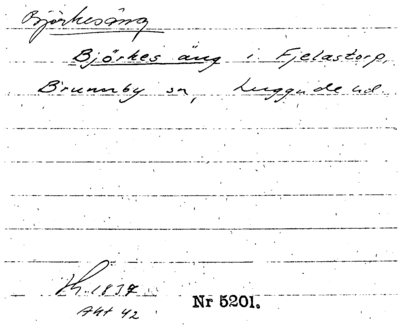 Björkesäng
Björkes äng i Fjelastorp,
Brunnby sn, Luggude hd.
1837
Akt 42
Nr 5201.